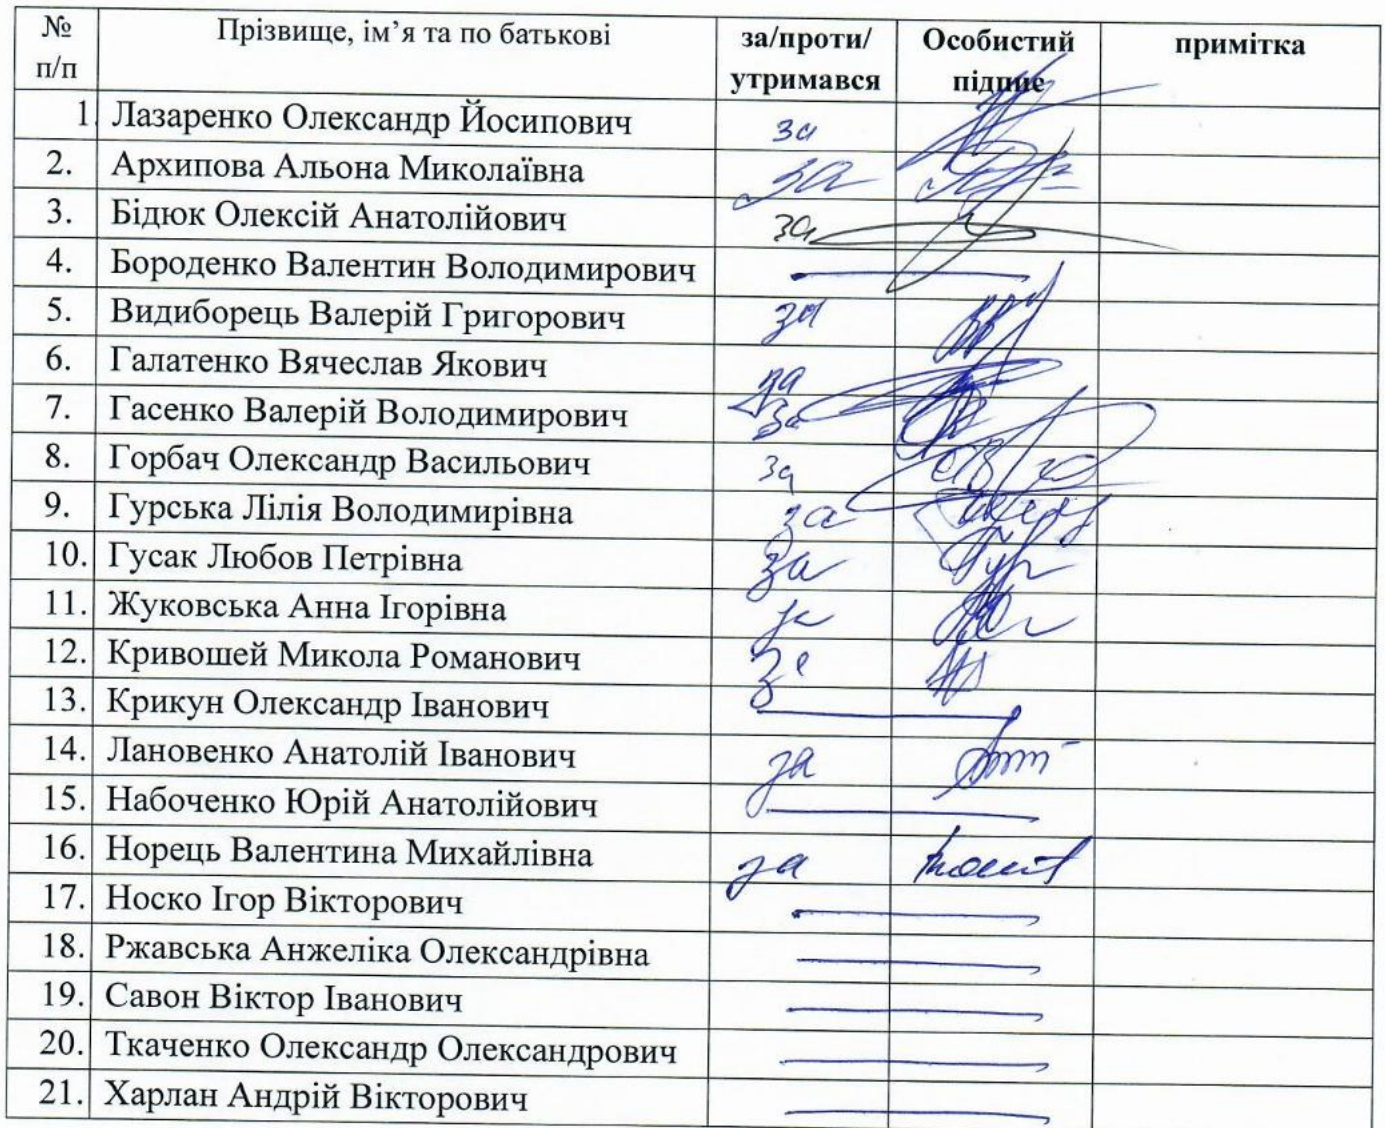 № п/п Прізвище, ім’я та по батькові за/проти/утримався Особистий підпис примітка
1. Лазаренко Олександр Йосипович за
2. Архипова Альона Миколаївна за
3. Бідюк Олексій Анатолійович за
4. Бороденко Валентин Володимирович
5. Видиборець Валерій Григорович за
6. Галатенко Вячеслав Якович за
7. Гасенко Валерій Володимирович за
8. Горбач Олександр Васильович за
9. Гурська Лілія Володимирівна за
10. Гусак Любов Петрівна за
11. Жуковська Анна Ігорівна за
12. Кривошей Микола Романович за
13. Крикун Олександр Іванович
14. Лановенко Анатолій Іванович за
15. Набоченко Юрій Анатолійович
16. Норець Валентина Михайлівна за
17. Носко Ігор Вікторович
18. Ржавська Анжеліка Олександрівна
19. Савон Віктор Іванович
20. Ткаченко Олександр Олександрович
21. Харлан Андрій Вікторович